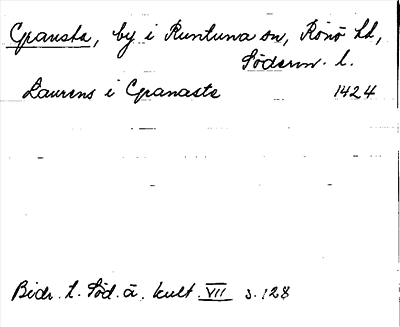 Gransta, by i Runtuna sn, Rönö hd,
Söderm. l.
Laurens i Granasta 1424
Bidr. t. Söd. ä. kult. VII s. 128